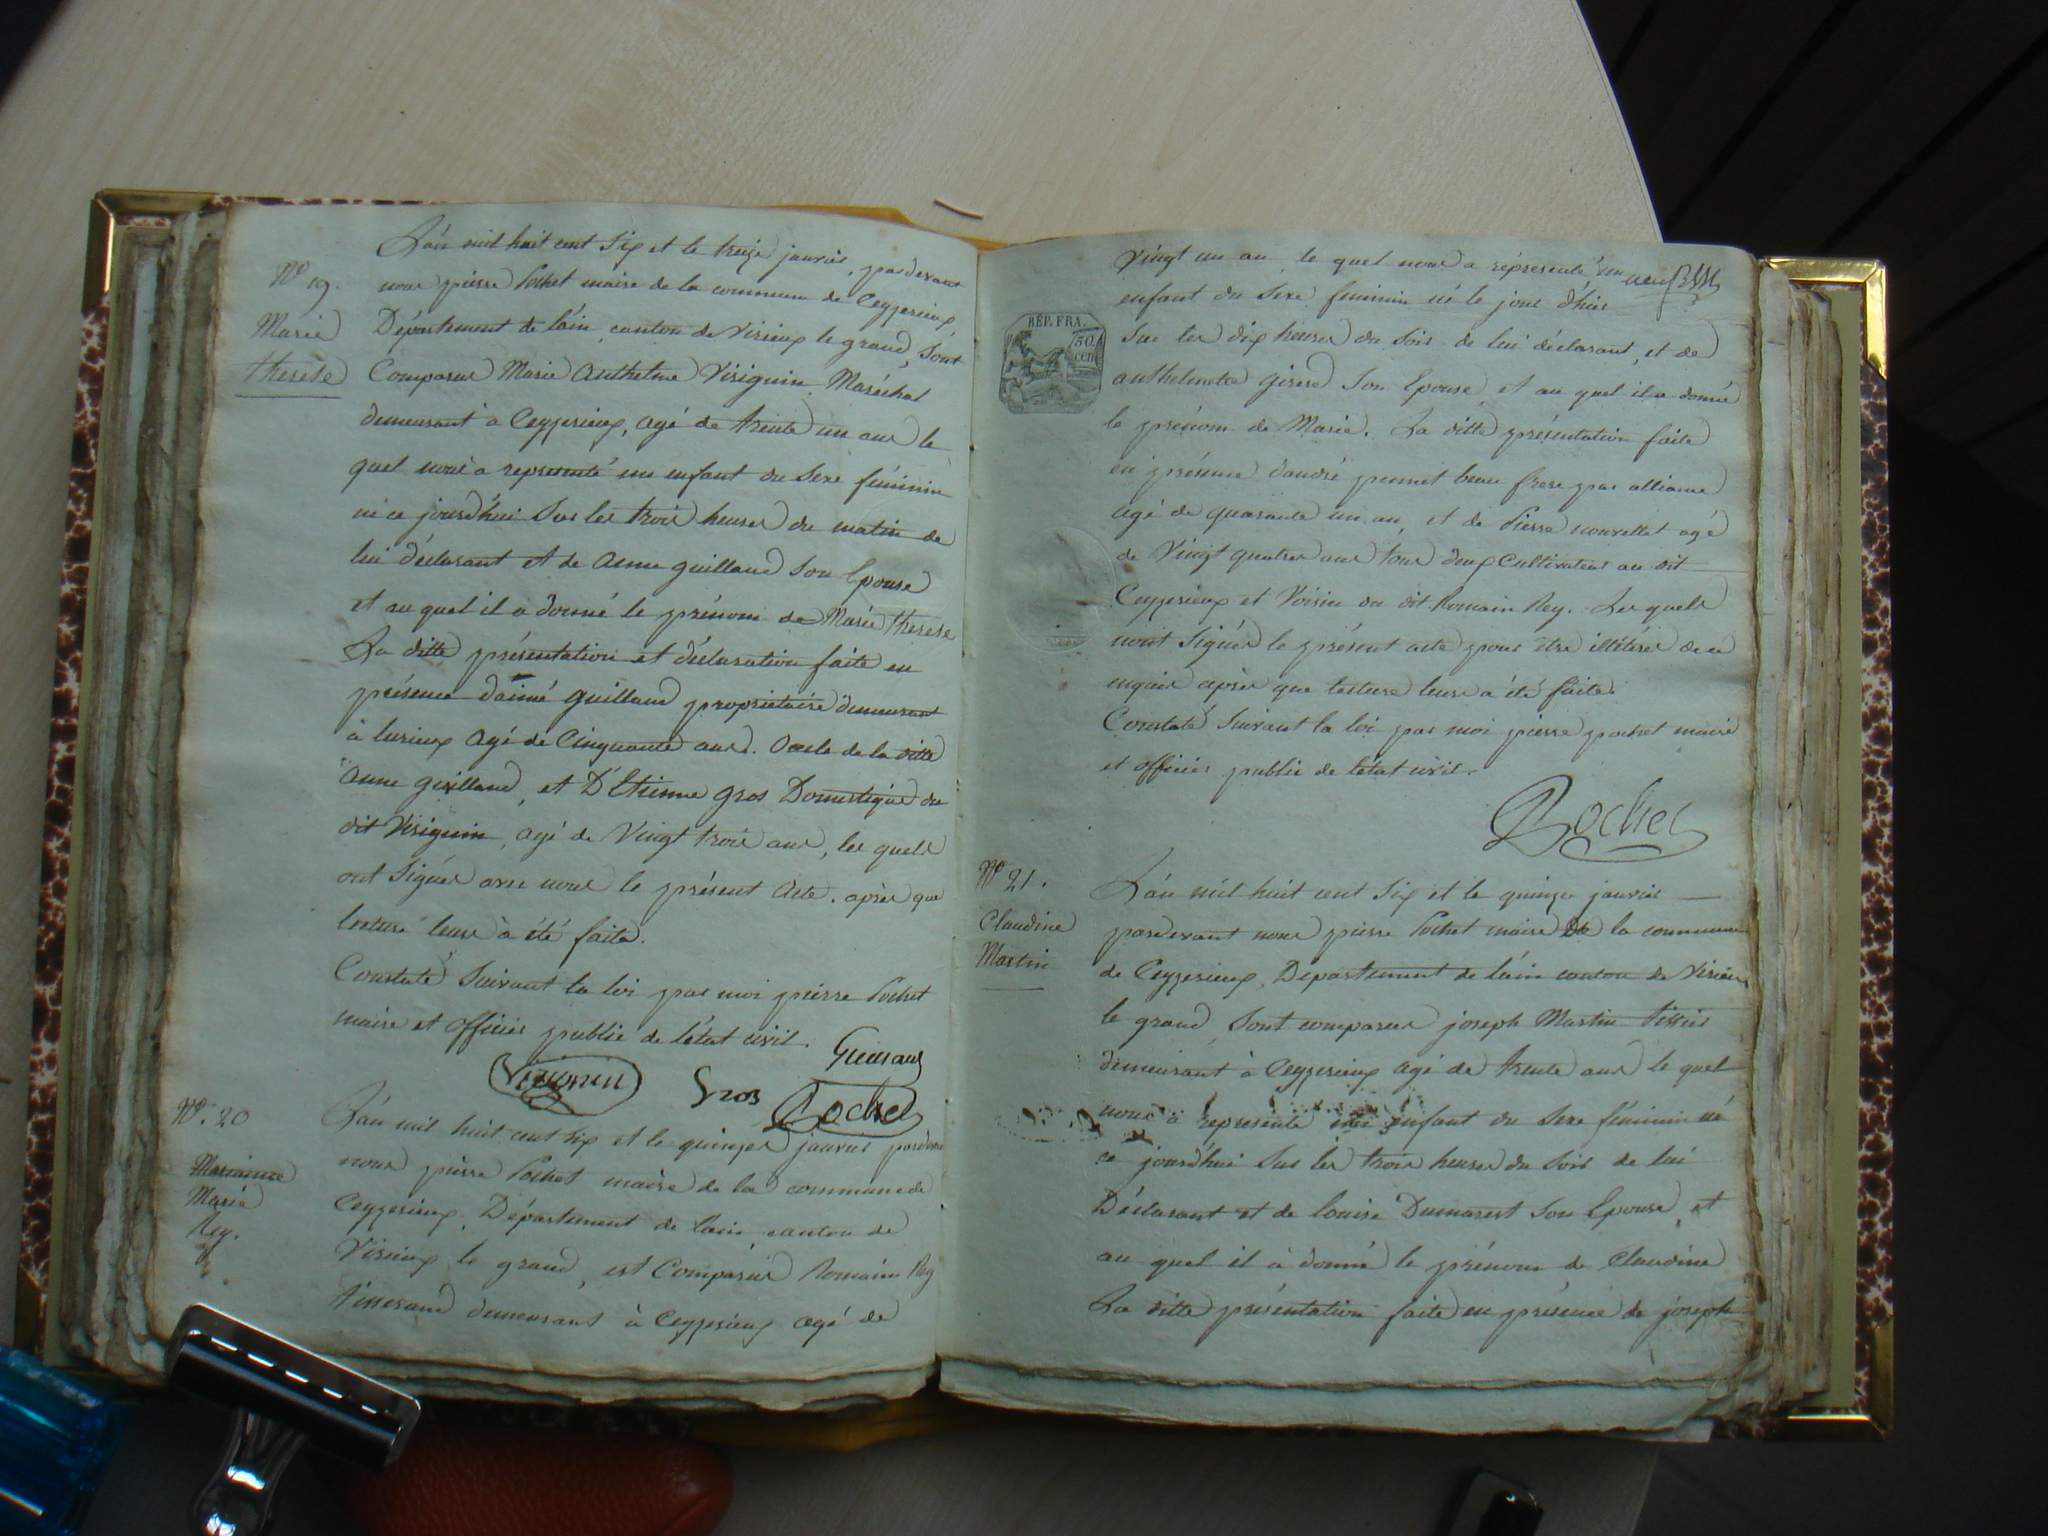 L'an mil huit cent six et le treize janvier, par devant
Nº 19.
nous pierre Pochet maire de la commune de Ceyzerieux
Marie
therese
Département de lain, canton de Virieux le grand, sont
Comparus Marie Anthelme Viriguin Maréchal
demeurant à Ceyzerieux, agé de trente un ans le
quel nous a representé un enfant du sexe féminin
né ce jourd'hui sur les trois heures du matin de
lui déclarant et de Anne guilland son Epouse
et au quel il a donné le prénom de Marie therese
La ditte présentation et déclaration faite en
présence daimé guilland propriétaire demeurant
à lurieux agé de Cinquante ans. oncle de la ditte
Anne guilland, et D'Etienne gros Domestique du
dit Viriguin, agé de Vingt trois ans, les quels
ont Signés avec nous le présent acte. après que
lecture leur à été faite.
Constaté Suivant la loi par moi pierre Pochet
maire et officier public de l'état civil.
Gros
Pochet
Nº. 20
Marianne
Marie
Rey.
L'an mil huit cent six et le quinze janvier pardevant
nous pièrre Pochet maire de la commune de
Ceyzerieux, Département de lain, canton de
Virieux le grand, est Comparus Romain Rey
tisserand demeurant à Ceyzerieux agé de
vingt un an, le quel nous a répresenté un
enfant du sexe feminin né le jour d'hier
REP. FRA.
50 cen
sur les dix heures du soir de lui déclarant, et de
anthelmette son Epouse, et au quel il a donné
le prénom de Marie. La ditte présentation faite
en présence dandré beau frere par alliance
agé de quarante un an, et de Pierre agé
de Vingt quatre ans tous deux Cultivateur au dit
Ceyzerieux et Voisin du dit Romain Rey. Les quels
nont Signés le présent acte pour être illitérés de ce
enquis après que lecture leur a été faite.
Constaté Suivant la loi par moi pierre pochet maire
et officier public de l'état civil.
Pochet
Nº 21.
Claudine
Martin
L'an mil huit cent six et le quinze janvier
pardevant nous pierre Pochet maire de la commune
de Ceyzerieux, Departement de lain canton de Virieux
le grand sont comparus joseph Martin tissier
demeurant à Ceyzerieux agé de trente ans le quel
nous a representé un enfant du sexe féminin né
ce jourd'hui sur les trois heures du soir de lui
Déclarant et de louise Dumarest son Epouse, et
au quel il à donné le prénom de Claudine
La ditte présentation faite en présence de joseph